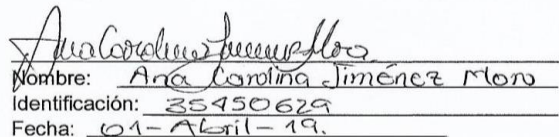 Ana Carolina Jiménez Mora
Nombre: Ana Carolina Jiménez Moro
Identificación: 35450629
Fecha: 01-Abril-19.